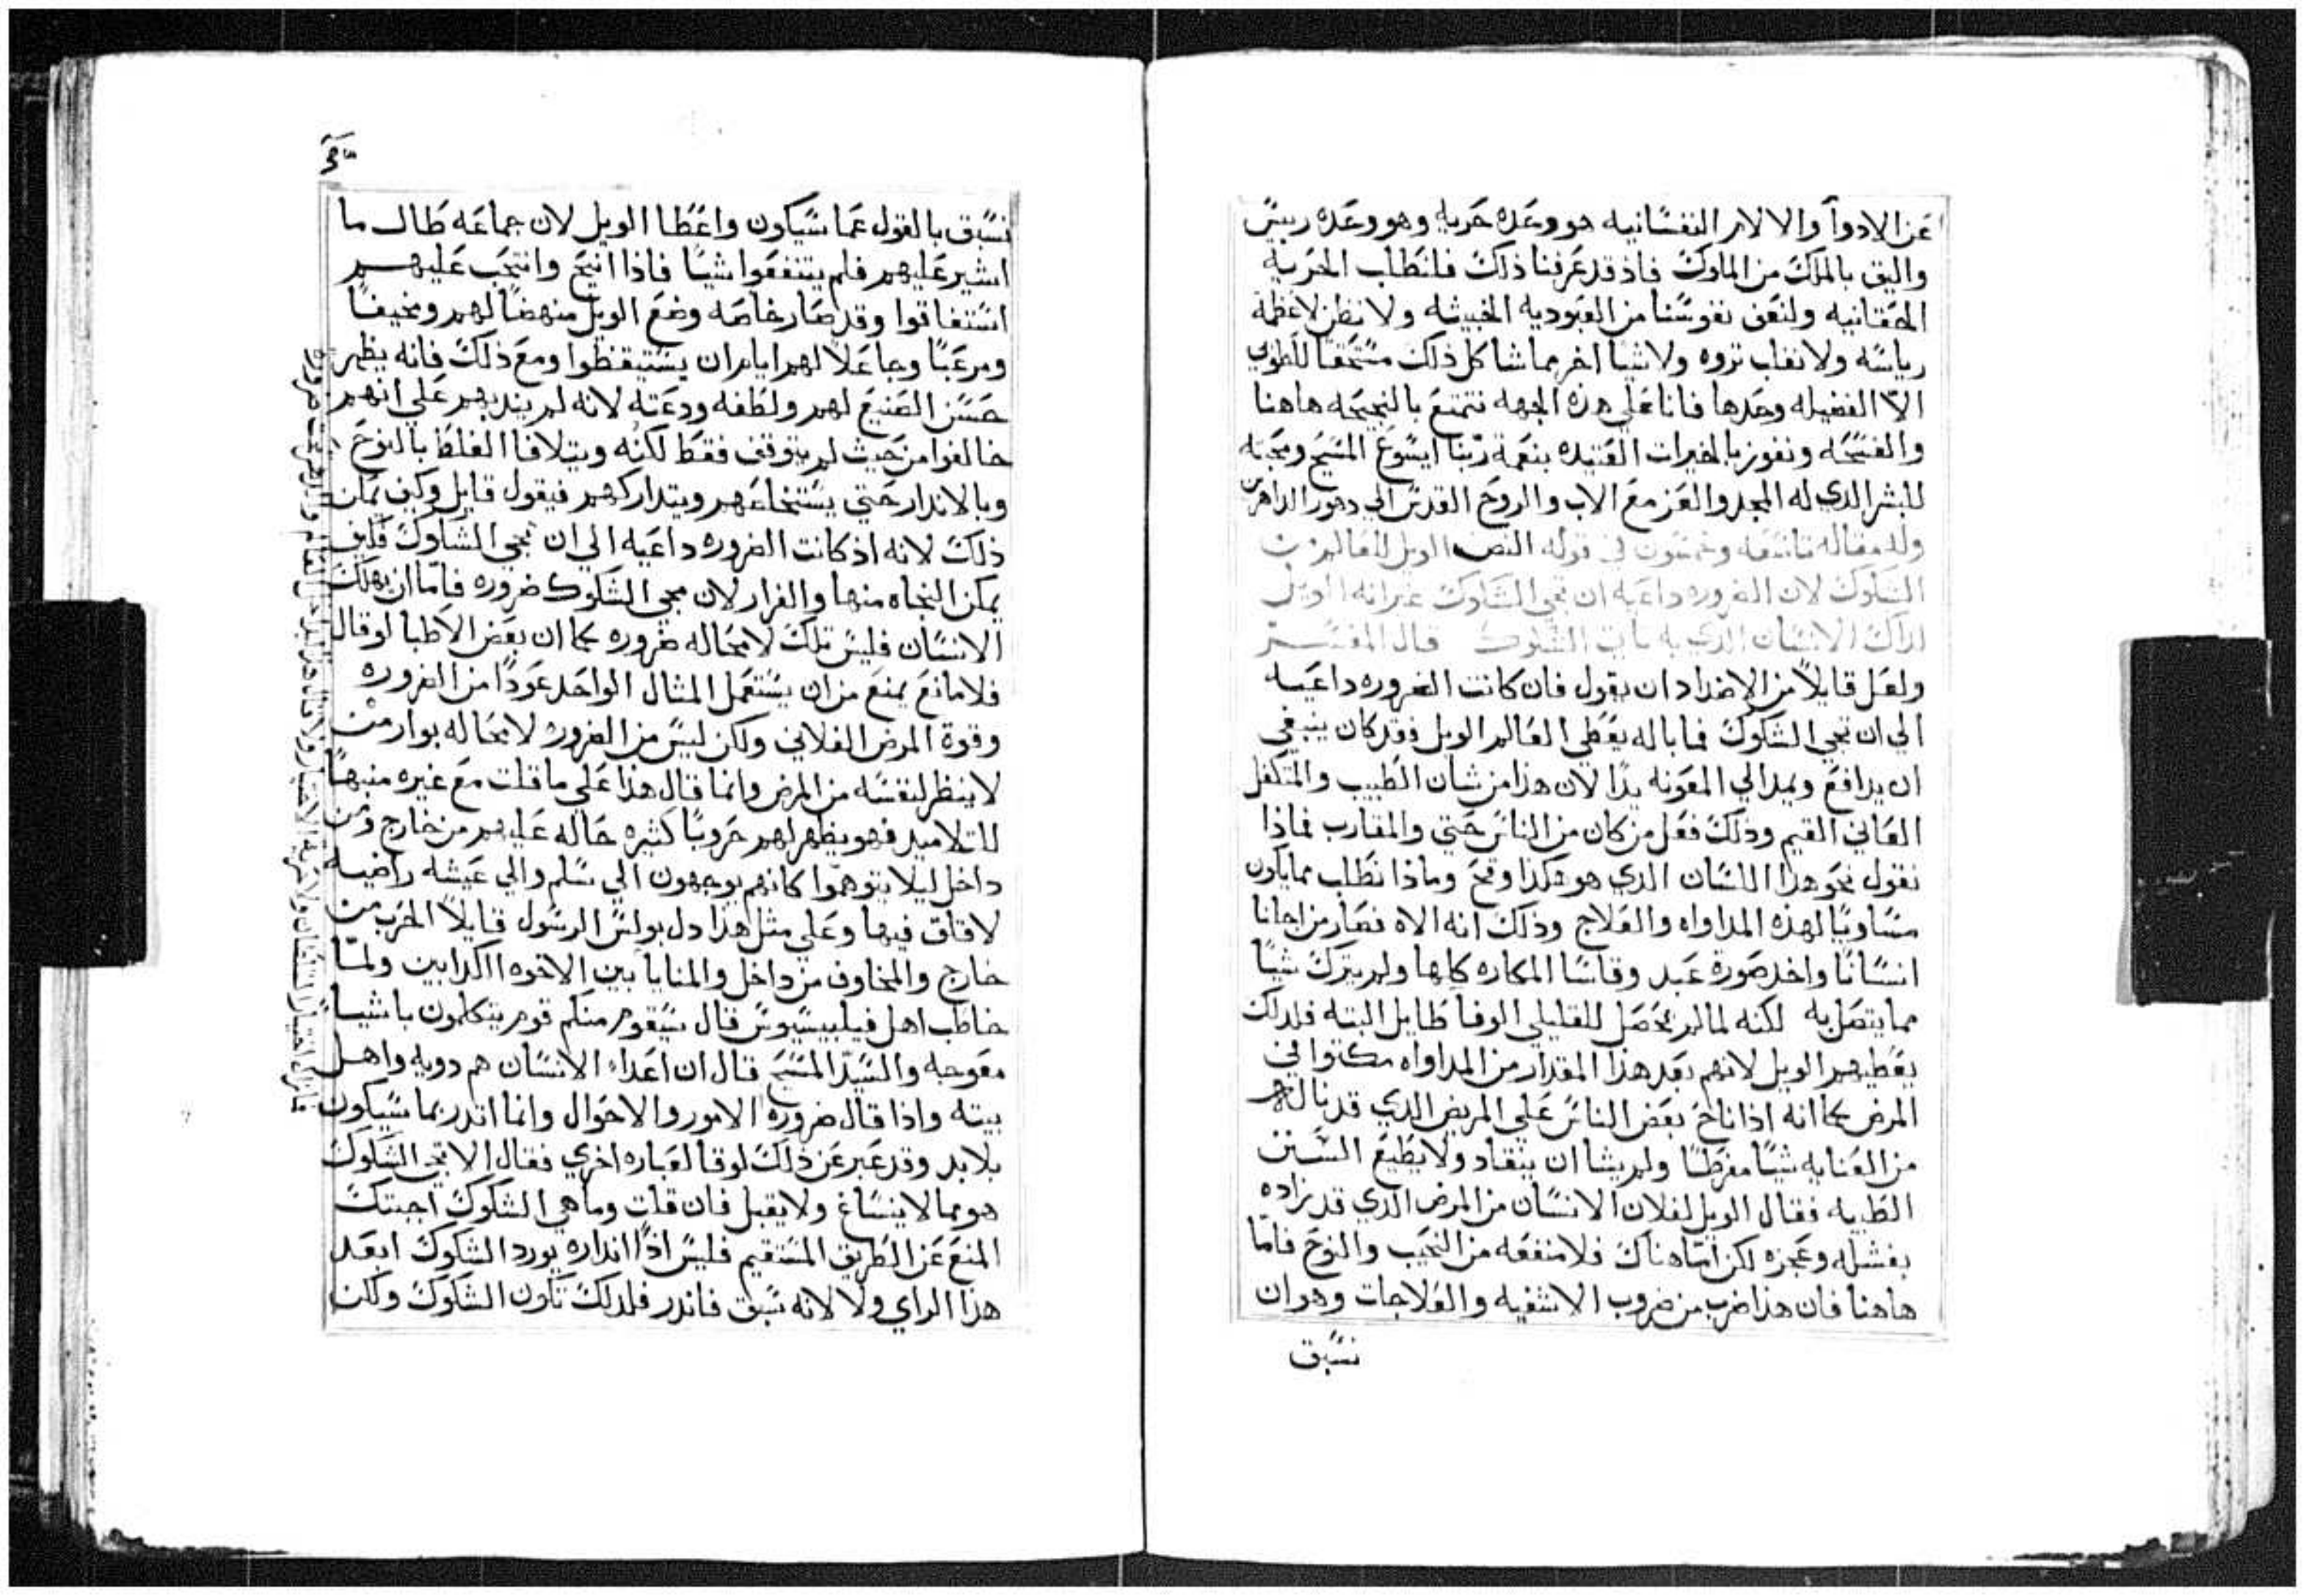 عن الادوآ والالام النفسانيه هو وعده حريه وهو وعده رييس
واليق بالملك من الملوك فاذ قد عرفنا ذلك فلنطلب الحريه
الحقانيه ولنعف نفوسنا من العبوديه الخبيثه ولا نظن لا عظمة
رياسه ولا نغاب ثروه ولا شيا اخر مما شاكل ذلك مستحقا للطوبي
الا الفضيله وحدها فانا علي هذه الجهه نتمتع بالنجيحه هاهنا
والفسحه ونفوز بالخيرات العتيده بنعمة ربنا ايسوع المسيح ومحبته
للبشر الدي له المجد والعز مع الاب والروح القدس الي دهور الداهرين
وله مقاله تاسعه وخمسون في قوله النص الويل للعالم من
الشكوك لان الضروره داعيه ان تجي الشكوك غير انه الويل
لداك الانسان الدي به تاتي الشكوك قال المفسر
ولعل قايلا من الاضداد ان يقول فان كانت الضروره داعيه
الي ان تجي الشكوك فما باله يعطي العالم الويل فقد كان ينبغي
ان يدافع ويمد الي المعونه يدا لان هذا من شان الطبيب والمتكفل
العاني القيم وذلك فعل من كان من الناس حتي والمقارب فماذا
نقول نحو هذا اللسان الدي هو هكذا وقح وماذا نطلب مما يكون
مساويا لهذه المداواه والعلاج وذلك انه الاه فصار من اجلنا
انسانا واخد صورة عبد وقاسا المكاره كلها ولم يترك شيا
مما يتصل به لكنه لما لم يحصل للقليلي الوفا طايل البته فلدلك
يعطيهم الويل لانهم بعد هذا المقدار من المداواه مكثوا في
المرض كما انه اذا ناح بعض الناس علي المريض الدي قد نالهم
من العنايه شيا مفرطا ولم يشا ان ينقاد ولا يطيع السنن
الطبيه فقال الويل لفلان الانسان من المرض الدي قد زاده
بفشله وعجزه لكن اما هناك فلا منفعه من النحيب والنوح فاما
هاهنا فان هذا ضرب من ضروب الاشفيه والعلاجات وهو ان
نسبق
نسبق بالقول عما سيكون واعطا الويل لان جماعه طال ما
اشير عليهم فلم ينتفعوا شيا فاذا انيح وانتحب عليهم
استفاقوا وقد صار خاصه وضع الويل منهضا لهم ومخيفا
ومرعبا وجاعلا لهم اياهم ان يستيقظوا ومع ذلك فانه يظهر
حسن الصنيع لهم ولطفه ودعته لانه لم يندبهم علي انهم
خالفوا من حيث لم يتوقف فقط لكنه ويتلافا الغلط بالنوح
وبالاندار حتي يستخلصهم ويتداركهم فيقول قايل وكيف يمكن
ذلك لانه اذ كانت الضروره داعيه الي ان تجي الشكوك فكيف
يمكن النجاه منها والفرار لان مجي الشكوك ضروره فاما ان يهلك
الانسان فليس تلك لا محاله ضروره كما ان بعض الاطبا لو قال
فلا مانع يمنع من ان يستعمل المثال الواحد عودا من الضروره
وقوة المرض الفلاني ولكن ليس من الضروره لا محاله بوار من
لا ينظر لنفسه من المرض وانما قال هذا علي ما قلت مع غيره منبها
للتلاميد فهو يظهر لهم حروبا كثيره حاله عليهم من خارج ومن
داخل ليلا يتوهموا كانهم يوجهون الي سلم والي عيشه راضيه
لا قلق فيها وعلي مثل هذا دل بولس الرسول قايلا الحرب من
خارج والمخاوف من داخل والمنايا بين الاخوه الكدابين ولما
خاطب اهل فيليبسيوس قال سيقوم منكم قوم يتكلمون باشيا
معوجه والسيد المسيح قال ان اعداء الانسان هم دويه واهل
بيته واذا قال ضرورة الامور والاحوال وانما اندر بما سيكون
بلا بد وقد عبر عن ذلك لوقا لعباره اخري فقال الا تجي الشكوك
هو مما لا ينساغ ولا يقبل فان قلت وما هي الشكوك اجبتك
المنع عن الطريق المستقيم فليس اذا انداره يورد الشكوك ابعد
هذا الراي ولا لانه سبق فاندر فلدلك تكون الشكوك ولكن